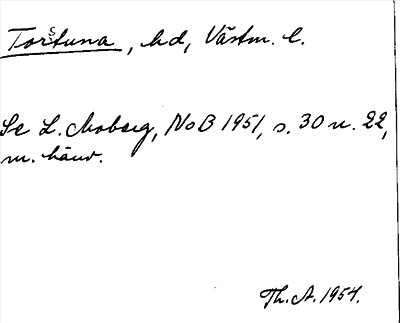 Torstuna, hd, Västm. l.
Se L. Moberg, NoB 1951, s. 30 n. 22,
m. hänv.
Th. A. 1954.